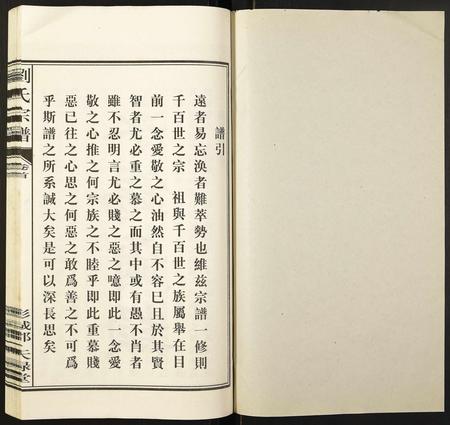 譜引
遠者易忘渙者難萃勢也維茲宗譜一修則
千百世之宗 祖與千百世之族屬舉在目
前一念愛敬之心油然自不容已且於其賢
智者尤必重之慕之而其中或有愚不肖者
雖不忍明言尤必賤之惡之噫即此一念愛
敬之心推之何宗族之不睦乎即此重慕賤
惡已往之心思之何惡之敢爲善之不可爲
乎斯譜之所系誠大矣是可以深長思矣
劉氏宗譜 卷首
彭城郡 天祿堂